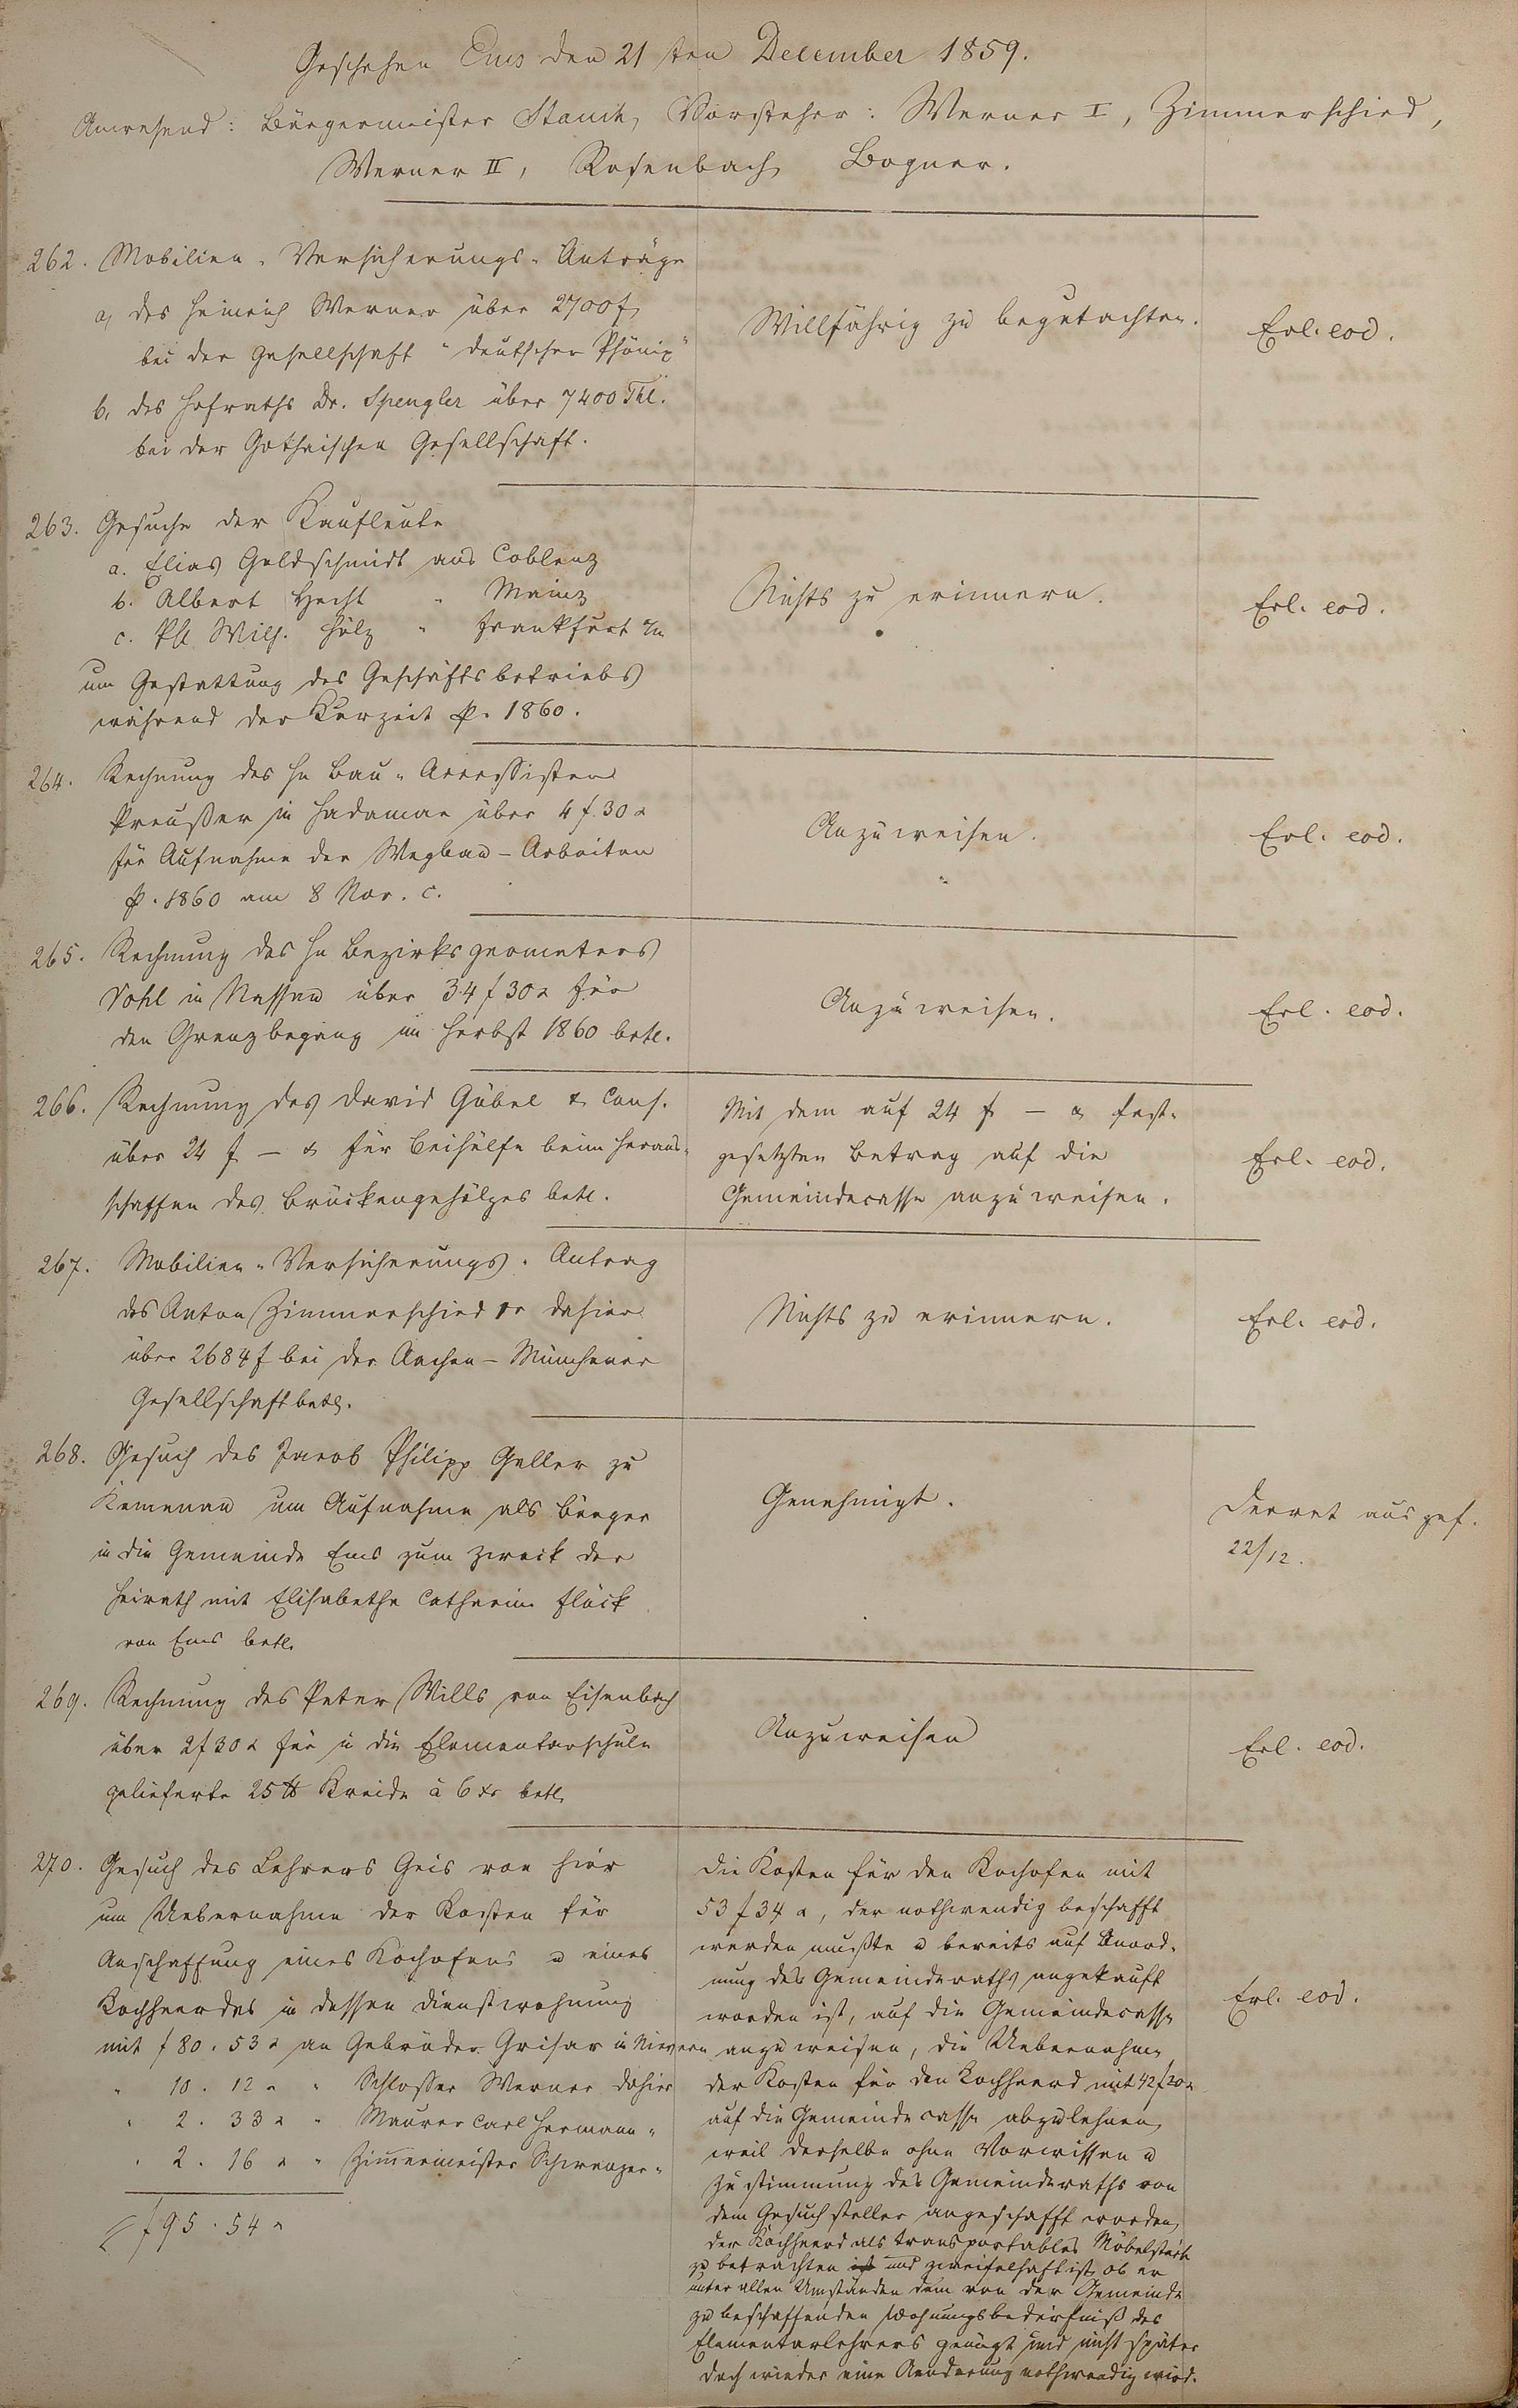 Geschehen Ems den 21ten December 1859.
Anwesend: Bürgermeister Stauch, Vorsteher: Werner I, Zimmerschied,
Werner II, Rosenbach Bogner.
262. Mobilien-Versicherungs-Anträge
a, des Heinrich Werner über 2700 f
bei der Gesellschaft "deutscher Phönix"
b, des Hofraths Dr. Spengler über 7400 Thl.
bei der Gothaischen Gesellschaft.
Willfährig zu begutachten.
Erl. eod.
263. Gesuche der Kaufleute
a. Elias Goldschmidt aus Coblenz
b. Albert Hecht " Mainz
c. Ph Wilh. Hölz " Frankfurt a/m
um Gestattung des Geschäftsbetriebs
während der Kurzeit p. 1860.
Nichts zu erinnern.
Erl. eod.
264. Rechnung des Hn Bau-Accessisten
Preußer in Hadamar über 4 f. 30 x
für Aufnahme der Wegbau-Arbeiten
p. 1860 am 8 Nov. c.
Anzuweisen.
Erl. eod.
265. Rechnung des Hn Bezirksgeometers
Vohl in Nassau über 34 f 30 x für
den Grenzbegang im Herbst 1860 betr.
Anzuweisen.
Erl. eod.
266. Rechnung des David Göbel & Cons.
über 24 f — x für Beihülfe beim Heraus-
schaffen des Brückengehölzes betr.
Mit dem auf 24 f — x fest-
gesetzten Betrag auf die
Gemeindecasse anzuweisen.
Erl. eod.
267. Mobilien-Versicherungs-Antrag
des Anton Zimmerschied 1r dahier
über 2684 f bei der Aachen-Münchener
Gesellschaft betr.
Nichts zu erinnern.
Erl. eod.
268. Gesuch des Jacob Philipp Geller zu
Kemenau um Aufnahme als Bürger
in die Gemeinde Ems zum Zweck der
Heirath mit Elisabethe Catharine Flöck
von Ems betr.
Genehmigt.
Decret ausgef.
22/12.
269. Rechnung des Peter Wills von Eisenbach
über 2 f 30 x für in die Elementarschule
gelieferte 25 ℔ Kreide à 6 xr betr.
Anzuweisen
Erl. eod.
270. Gesuch des Lehrers Geis von hier
um Uebernahme der Kosten für
Anschaffung eines Kochofens u eines
Kochheerdes in dessen Dienstwohnung
mit f 80. 53 x an Gebrüder Grisar in Nievern
" 10. 12 " " Schlosser Werner dahier
" 2. 33 x " Maurer Carl Hermann "
" 2. 16 x " Zimmermeister Schwenzer "
f 95. 54 x
Die Kosten für den Kochofen mit
53 f 34 x, der nothwendig beschafft
werden mußte u bereits auf Anord-
nung des Gemeinderaths angekauft
worden ist, auf die Gemeindecasse
anzuweisen, die Uebernahme
der Kosten für den Kochheerd mit 42 f 20 x
auf die Gemeindecasse abzulehnen,
weil derselbe ohne Vorwissen u
Zustimmung des Gemeinderaths von
dem Gesuchsteller angeschafft worden,
der Kochheerd als transportables Möbelstück
zu betrachten ist und zweifelhaft ist, ob er
unter allen Umständen dem von der Gemeinde
zu beschaffenden Wohnungsbedürfniß des
Elementarlehrers genügt und nicht später
doch wieder eine Aenderung nothwendig wird.
Erl. eod.